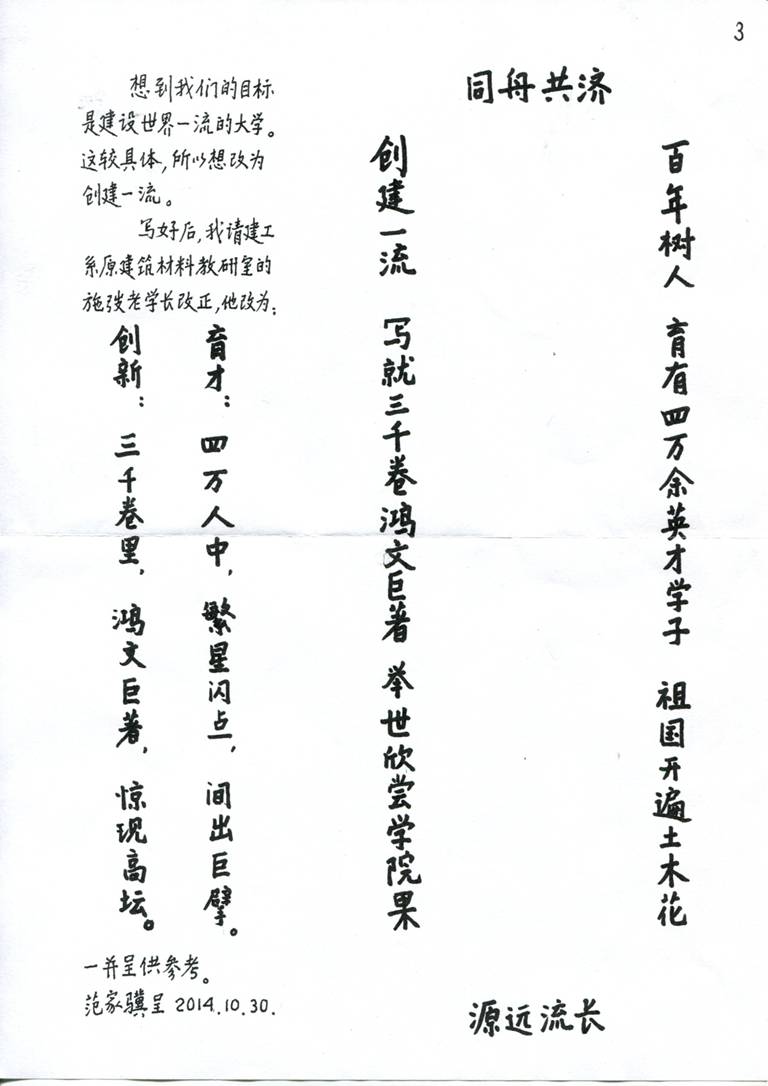 3
同舟共济
百年树人 育有四万余英才学子 祖国开遍土木花
创建一流 写就三千卷鸿文巨著 举世欣尝学院果
源远流长
想到我们的目标
是建设世界一流的大学。
这较具体,所以想改为
创建一流。
写好后,我请建工
系原建筑材料教研室的
施弢老学长改正,他改为:
育才: 四万人中, 繁星闪点, 间出巨擘。
创新: 三千卷里, 鸿文巨著, 惊现高坛。
一并呈供参考。
范家骥呈 2014.10.30.